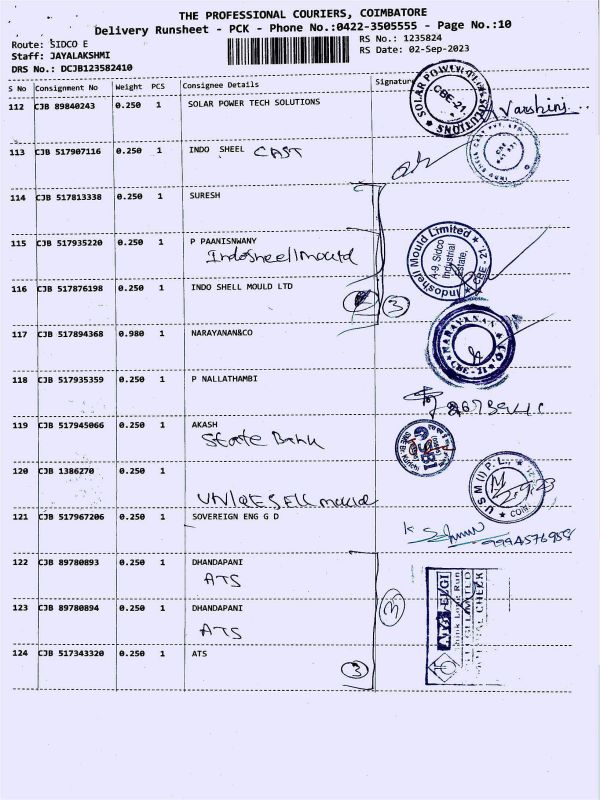 THE PROFESSIONAL COURIERS, COIMBATORE
Delivery Runsheet - PCK - Phone No.:0422-3505555 - Page No.:10
Route: SIDCO E
RS No.: 1235824
Staff: JAYALAKSHMI
RS Date: 02-Sep-2023
DRS No.: DCJB123582410
S No Consignment No Weight PCS Consignee Details Signature
112 CJB 89840243 0.250 1 SOLAR POWER TECH SOLUTIONS
SOLAR POWER TECH SOLUTIONS CBE-21
Varshini
113 CJB 517907116 0.250 1 INDO SHEEL CAST
114 CJB 517813338 0.250 1 SURESH
115 CJB 517935220 0.250 1 P PAANISNWANY
Indosheel mould
Indoshell Mould Limited
A-9, Sidco
Industrial
Estate,
CBE - 21.
116 CJB 517876198 0.250 1 INDO SHELL MOULD LTD
3
117 CJB 517894368 0.980 1 NARAYANAN&CO
CBE-21
118 CJB 517935359 0.250 1 P NALLATHAMBI
119 CJB 517945066 0.250 1 AKASH
State Bank
SBI
120 CJB 1386270 0.250 1
mould
U S M (I) P. L.,
121 CJB 517967206 0.250 1 SOVEREIGN ENG G D
122 CJB 89780893 0.250 1 DHANDAPANI
ATS
123 CJB 89780894 0.250 1 DHANDAPANI
ATS
3
124 CJB 517343320 0.250 1 ATS
3
ATS ELGI
Think Long Run